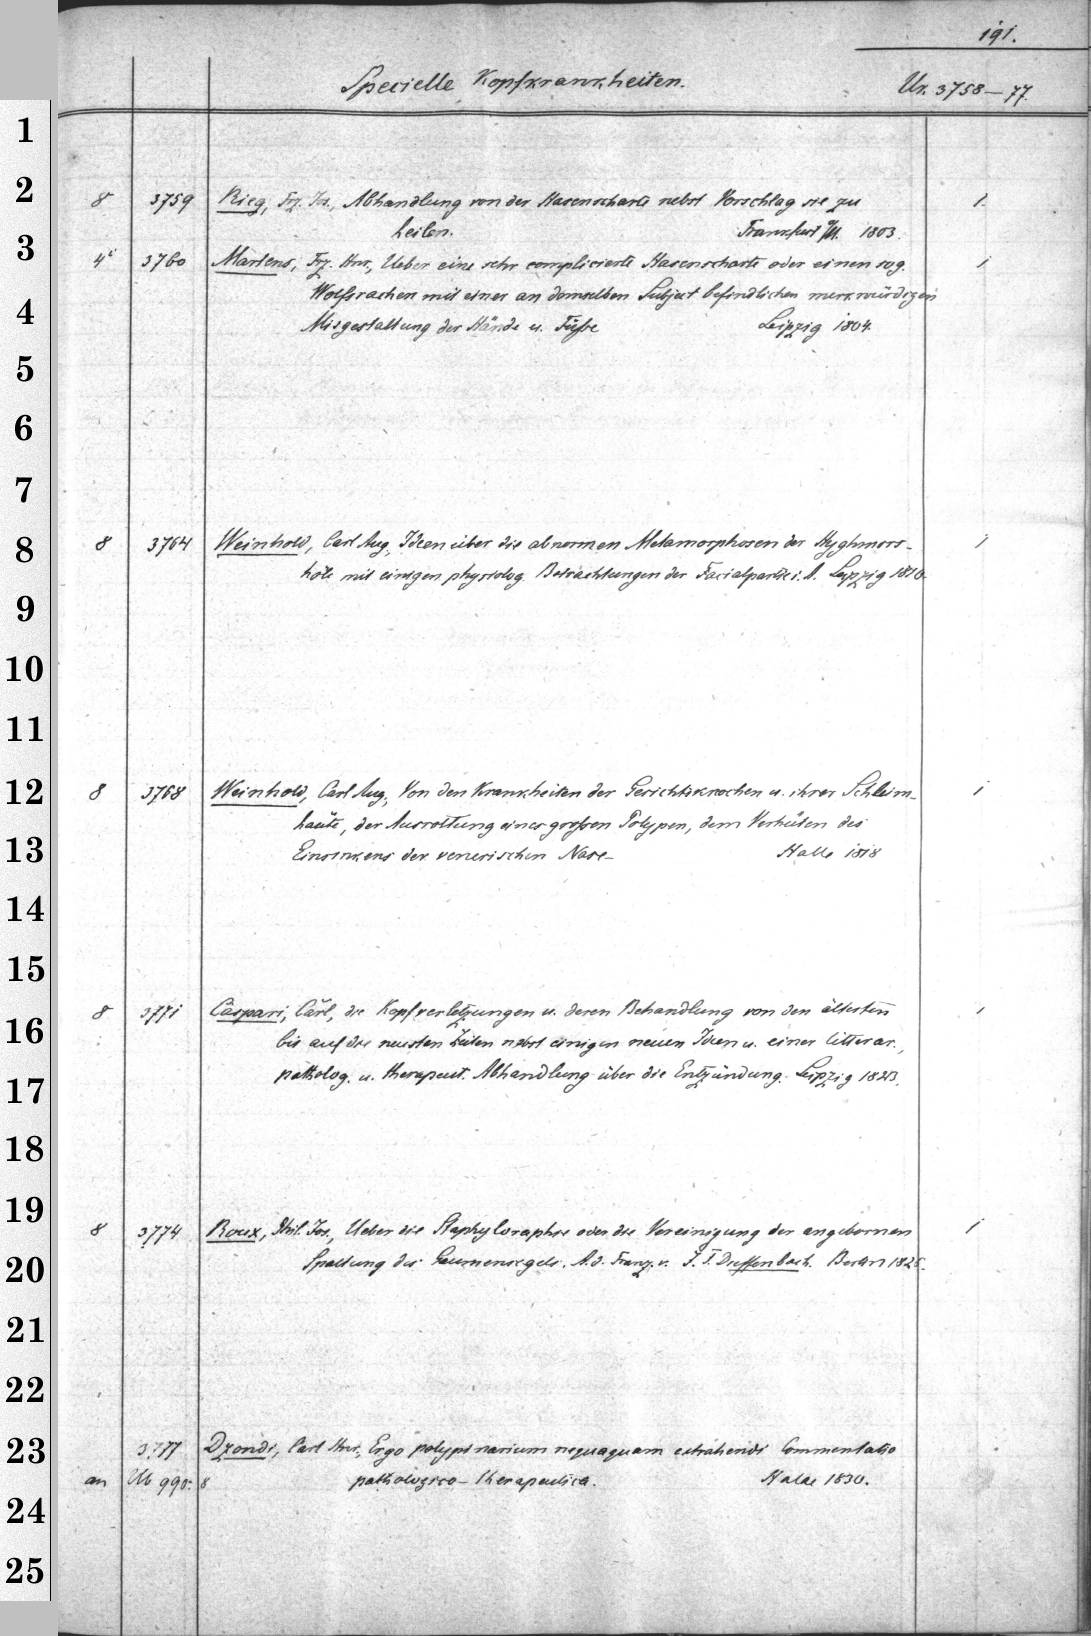 191.
Specielle Kopfkrankheiten. Ur. 3758–77.
1
2
8 3759 Rieg, Frz. Jos., Abhandlung von der Hasenscharte nebst Vorschlag sie zu 1.
heilen. Frankfurt a/M. 1803.
3
4° 3760 Martens, Frz. Hnr., Ueber eine sehr complicierte Hasenscharte oder einen sog. 1
Wolfsrachen mit einer an demselben Subject befindlichen merkwürdigen
4
Misgestaltung der Hände u. Füsse Leipzig 1804.
5
6
7
8
8 3764 Weinhold, Carl Aug., Ideen über die abnormen Metamorphosen der Hyghmors- 1
höle mit einigen physiolog. Betrachtungen der Facialpartie i. A. Leipzig 1810.
9
10
11
12
8 3768 Weinhold, Carl Aug., Von den Krankheiten der Gesichtsknochen u. ihrer Schleim- 1
häute, der Ausrottung eines grossen Polypen, dem Verhüten des
13
Einsinkens der venerischen Nase- Halle 1818
14
15
8 3771 Caspari, Carl, die Kopfverletzungen u. deren Behandlung von den ältesten 1
16
bis auf die neusten Zeiten nebst einigen neuen Ideen u. einer litterar.,
patholog. u. therapeut. Abhandlung über die Entzündung. Leipzig 1823.
17
18
19
8 3774 Roux, Phil. Jos., Ueber die Staphyloraphie oder die Vereinigung der angebornen 1
20
Spaltung des Gaumensegels. A. d. Franz. v. J. F. Dieffenbach. Berlin 1826.
21
22
23
3777 Dzondi, Carl Hnr., Ergo polypi narium nequaquam extrahendi Commentatio
an Ub 990. 8 pathologico-therapeutica. Halae 1830.
24
25